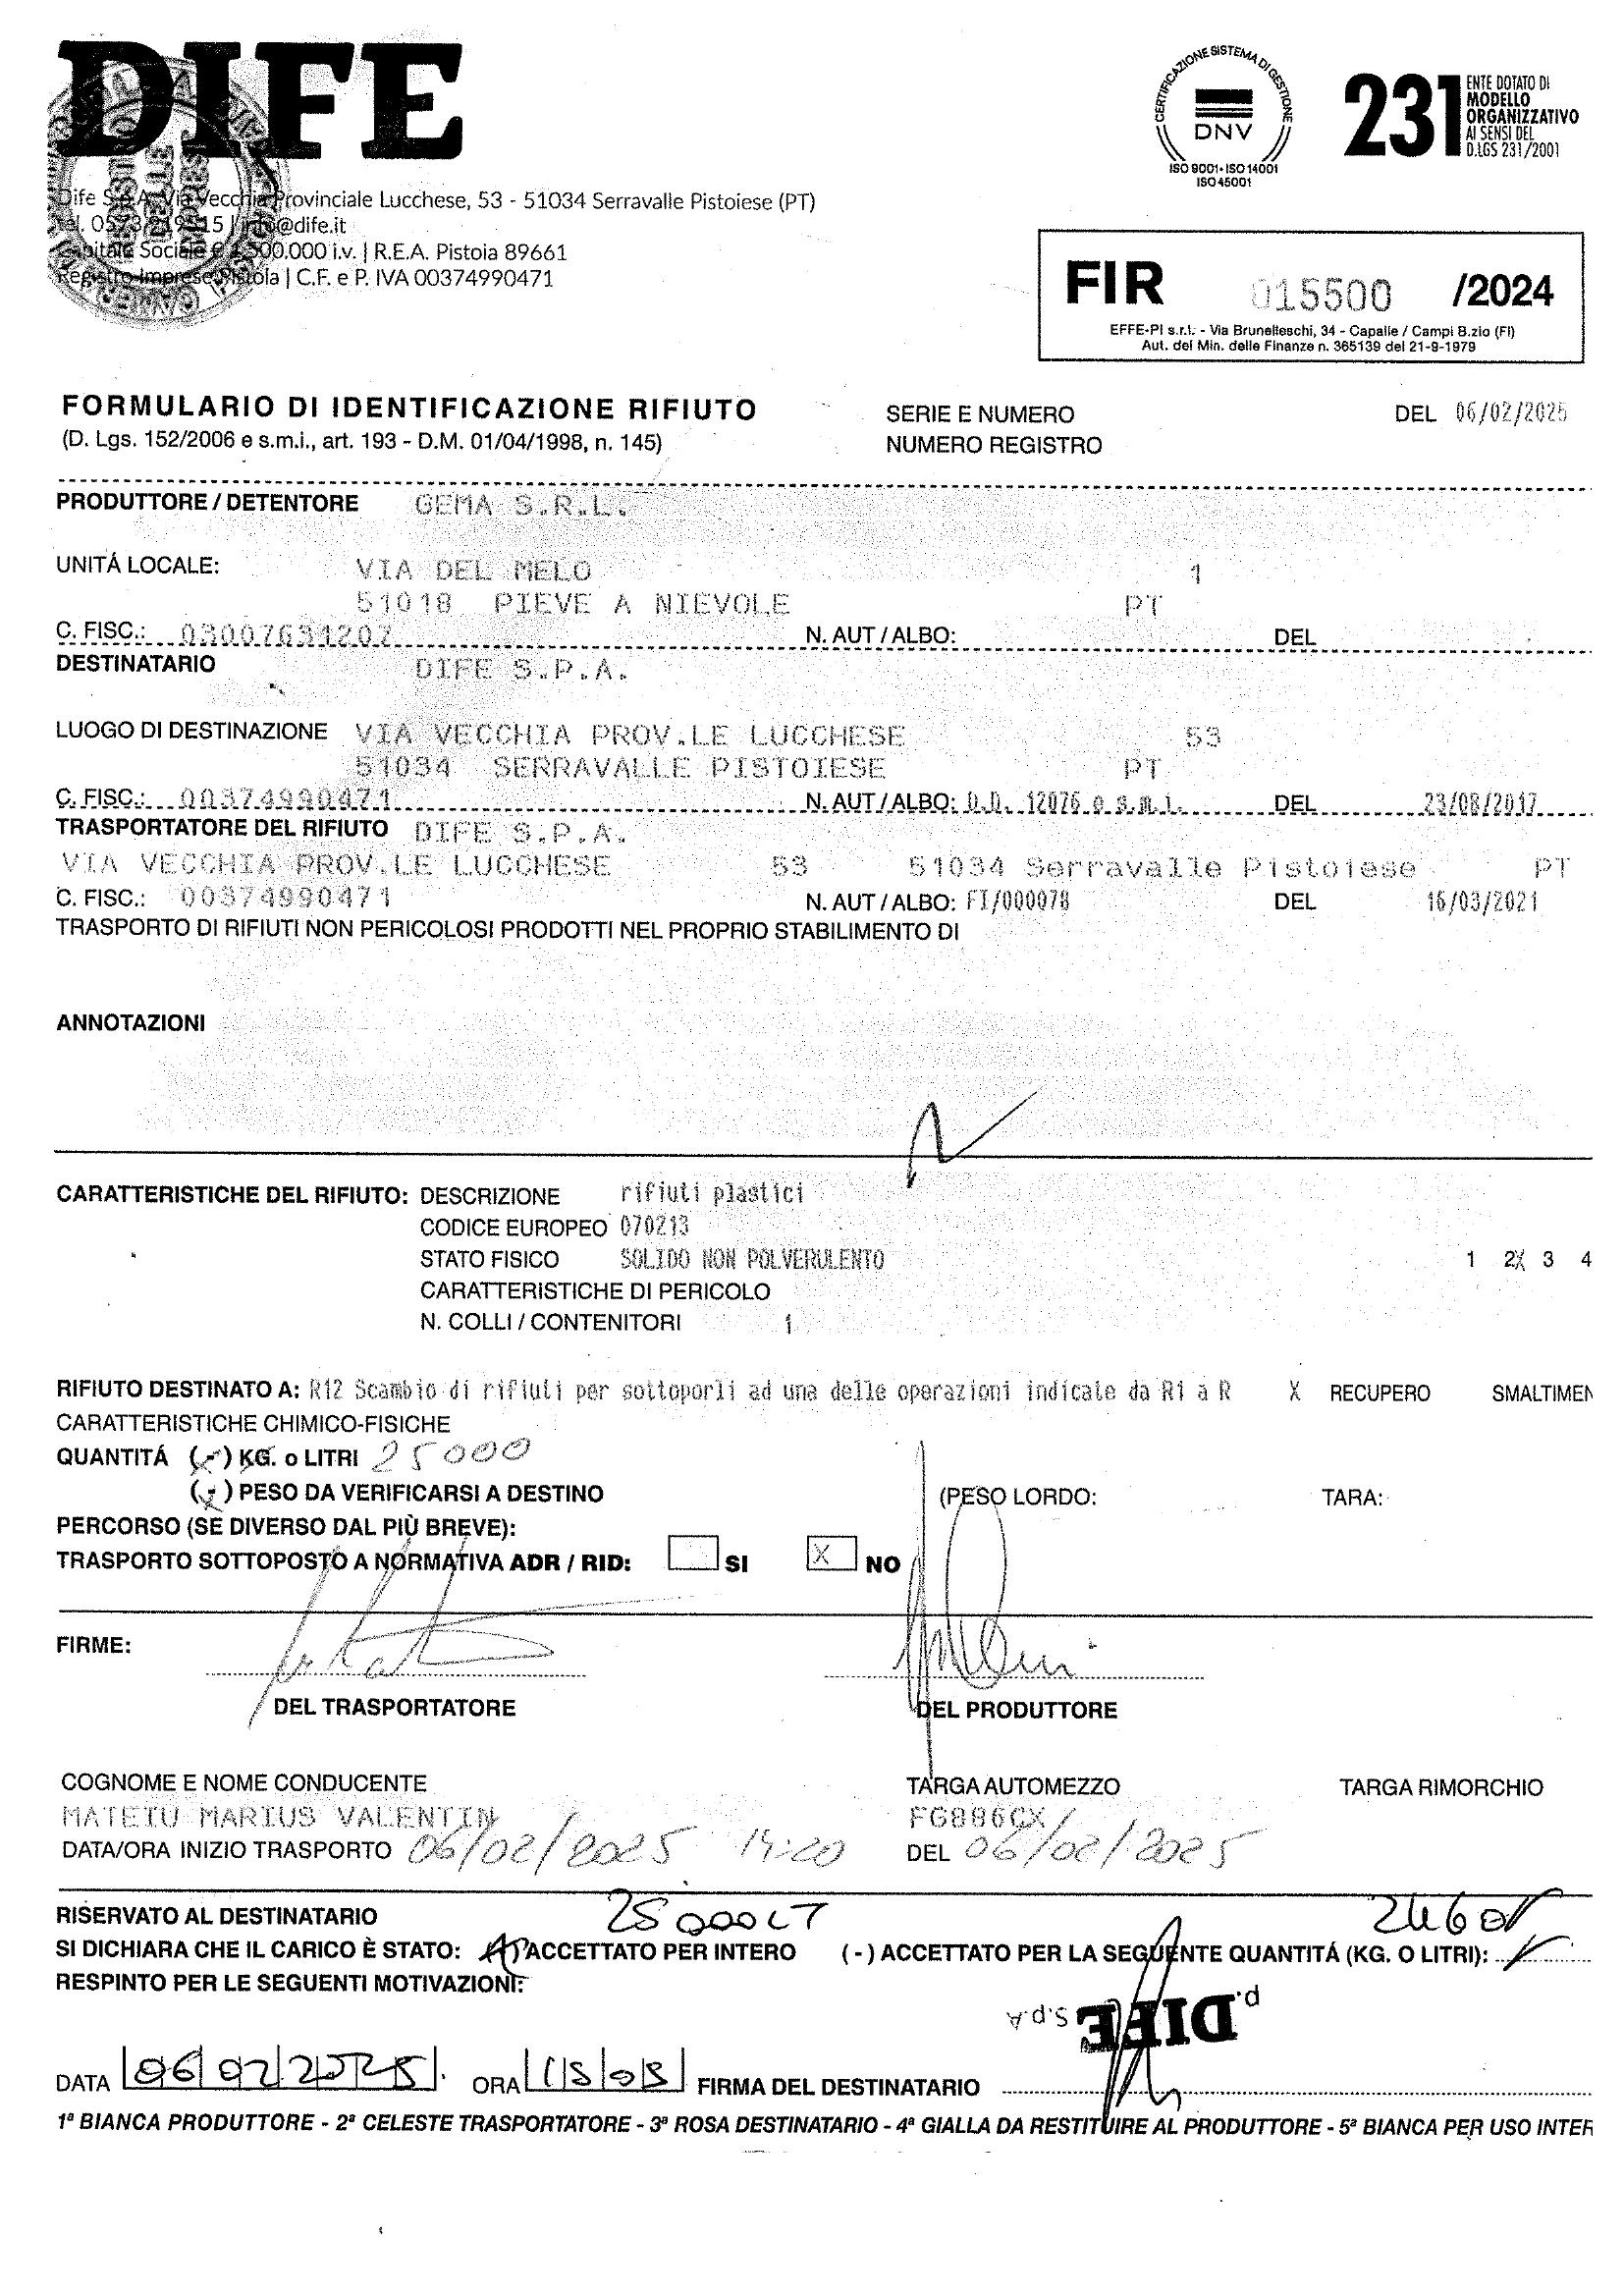 DIFE
Dife S.p.A. Via Vecchia Provinciale Lucchese, 53 - 51034 Serravalle Pistoiese (PT)
info@dife.it
Capitale Sociale € 1.500.000 i.v. | R.E.A. Pistoia 89661
Registro Imprese Pistoia | C.F. e P. IVA 00374990471
CERTIFICAZIONE SISTEMA DI GESTIONE
DNV
ISO 9001 • ISO 14001
ISO 45001
231 ENTE DOTATO DI
MODELLO
ORGANIZZATIVO
AI SENSI DEL
D.LGS 231/2001
FIR 015500 /2024
EFFE-PI s.r.l. - Via Brunelleschi, 34 - Capalle / Campi B.zio (FI)
Aut. del Min. delle Finanze n. 365139 del 21-9-1979
FORMULARIO DI IDENTIFICAZIONE RIFIUTO
(D. Lgs. 152/2006 e s.m.i., art. 193 - D.M. 01/04/1998, n. 145)
SERIE E NUMERO DEL 06/02/2025
NUMERO REGISTRO
PRODUTTORE / DETENTORE GEMA S.R.L.
UNITÁ LOCALE: VIA DEL MELO 1
51018 PIEVE A NIEVOLE PT
C. FISC.: 03007631207 N. AUT / ALBO: DEL
DESTINATARIO DIFE S.P.A.
LUOGO DI DESTINAZIONE VIA VECCHIA PROV.LE LUCCHESE 53
51034 SERRAVALLE PISTOIESE PT
C. FISC.: 00374990471 N. AUT / ALBO: D.D. 12076 e s.m.i. DEL 23/08/2017
TRASPORTATORE DEL RIFIUTO DIFE S.P.A.
VIA VECCHIA PROV.LE LUCCHESE 53 51034 Serravalle Pistoiese PT
C. FISC.: 00374990471 N. AUT / ALBO: FI/000078 DEL 16/03/2021
TRASPORTO DI RIFIUTI NON PERICOLOSI PRODOTTI NEL PROPRIO STABILIMENTO DI
ANNOTAZIONI
CARATTERISTICHE DEL RIFIUTO: DESCRIZIONE rifiuti plastici
CODICE EUROPEO 070213
STATO FISICO SOLIDO NON POLVERULENTO 1 2X 3 4
CARATTERISTICHE DI PERICOLO
N. COLLI / CONTENITORI 1
RIFIUTO DESTINATO A: R12 Scambio di rifiuti per sottoporli ad una delle operazioni indicate da R1 a R X RECUPERO SMALTIMEN
CARATTERISTICHE CHIMICO-FISICHE
QUANTITÁ (-) KG. o LITRI 25000
(-) PESO DA VERIFICARSI A DESTINO (PESO LORDO: TARA:
PERCORSO (SE DIVERSO DAL PIÙ BREVE):
TRASPORTO SOTTOPOSTO A NORMATIVA ADR / RID: SI X NO
FIRME:
DEL TRASPORTATORE DEL PRODUTTORE
COGNOME E NOME CONDUCENTE TARGA AUTOMEZZO TARGA RIMORCHIO
MATEIU MARIUS VALENTIN FG886CX
DATA/ORA INIZIO TRASPORTO 06/02/2025 14:20 DEL 06/02/2025
RISERVATO AL DESTINATARIO 25000 LT
SI DICHIARA CHE IL CARICO È STATO: ACCETTATO PER INTERO (-) ACCETTATO PER LA SEGUENTE QUANTITÁ (KG. O LITRI):
RESPINTO PER LE SEGUENTI MOTIVAZIONI:
p. DIFE S.p.A
DATA 06 02 2025 ORA 15 05 FIRMA DEL DESTINATARIO
1ª BIANCA PRODUTTORE - 2ª CELESTE TRASPORTATORE - 3ª ROSA DESTINATARIO - 4ª GIALLA DA RESTITUIRE AL PRODUTTORE - 5ª BIANCA PER USO INTER